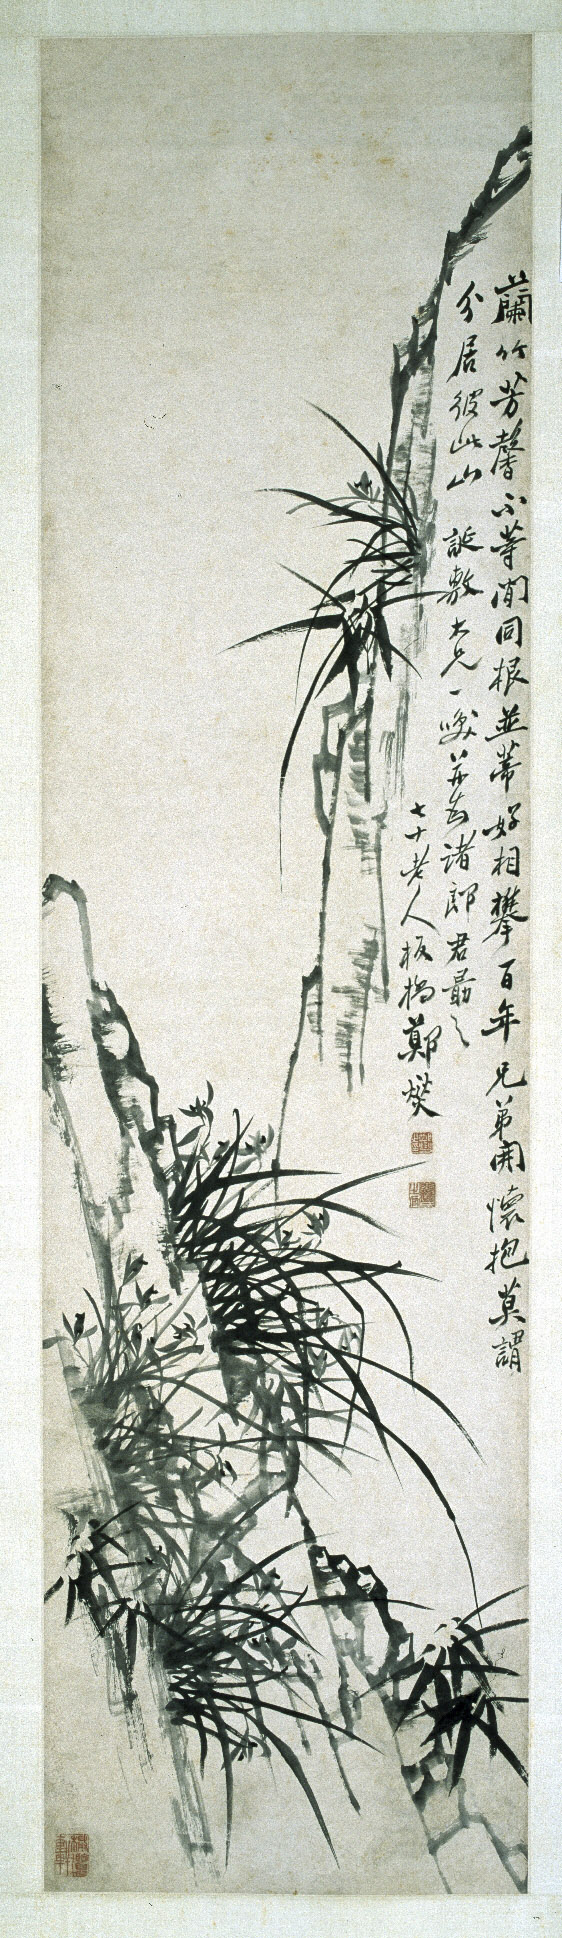 蘭竹芳馨不等閒同根並蒂好相攀百年兄弟開懷抱莫謂
分居彼此山 誕敷大兄一咲并書諸郎君勗之
七十老人板橋鄭燮